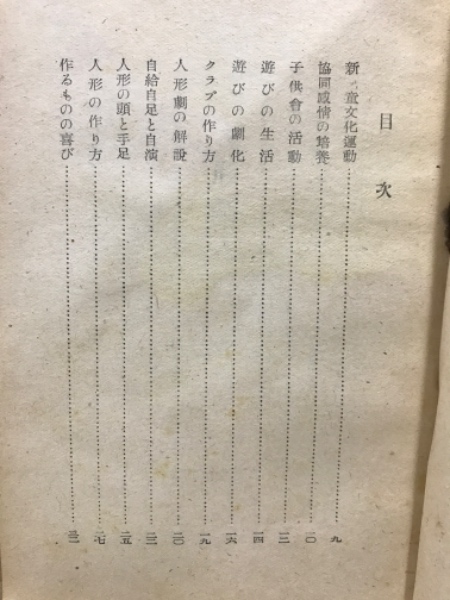 目次
新兒童文化運動……九
協同感情の培養……一〇
子供會の活動……一二
遊びの生活……一四
遊びの劇化……一六
クラブの作り方……一九
人形劇の解説……二〇
自給自足と自演……二三
人形の頭と手足……二五
人形の作り方……二七
作るものの喜び……三一